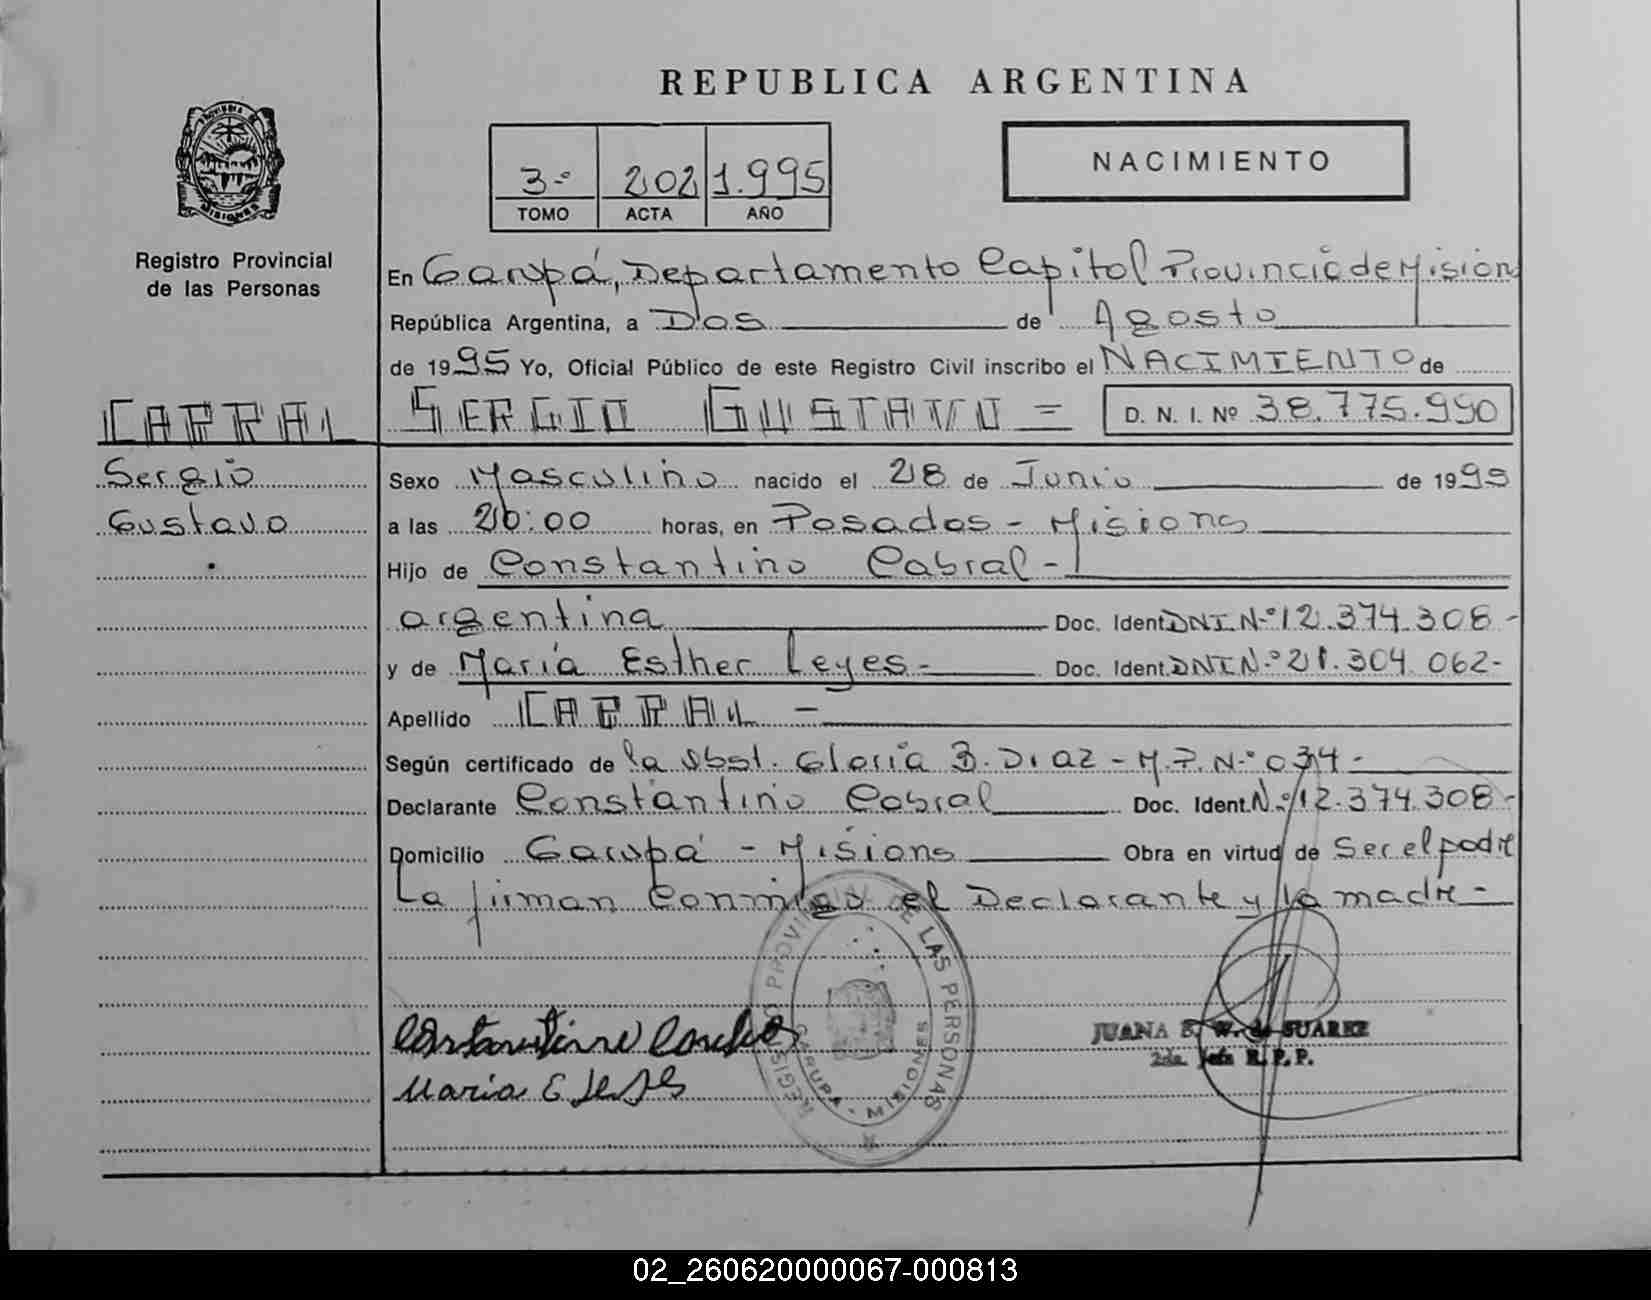 REPUBLICA ARGENTINA
NACIMIENTO
3º 202 1.995
TOMO ACTA AÑO
Registro Provincial
de las Personas
En Garupá, Departamento Capital Provincia de Mision
República Argentina, a Dos de Agosto
de 1995 Yo, Oficial Público de este Registro Civil inscribo el NACIMIENTO de
CABRAL
SERGIO GUSTAVO = D. N. I. Nº 38.775.990
Sergio
Gustavo
Sexo Masculino nacido el 28 de Junio de 1995
a las 20:00 horas, en Posadas - Misions
Hijo de Constantino Cabral -
argentina Doc. Ident. DNI Nº 12.374.308 -
y de María Esther Leyes - Doc. Ident. DNI Nº 21.304.062-
Apellido CABRAL -
Según certificado de la Obst. Gloria B. Diaz - M.P. Nº 034 -
Declarante Constantino Cabral Doc. Ident. Nº 12.374.308 -
Domicilio Garupá - Misions Obra en virtud de Ser el padre
La firman Conmigo el Declarante y la madre -
REGISTRO PROVINCIAL DE LAS PERSONAS
GARUPA - MISIONES
Maria E Leyes
JUANA E. W. de SUAREZ
2da. Jefa R. P. P.
02_260620000067-000813